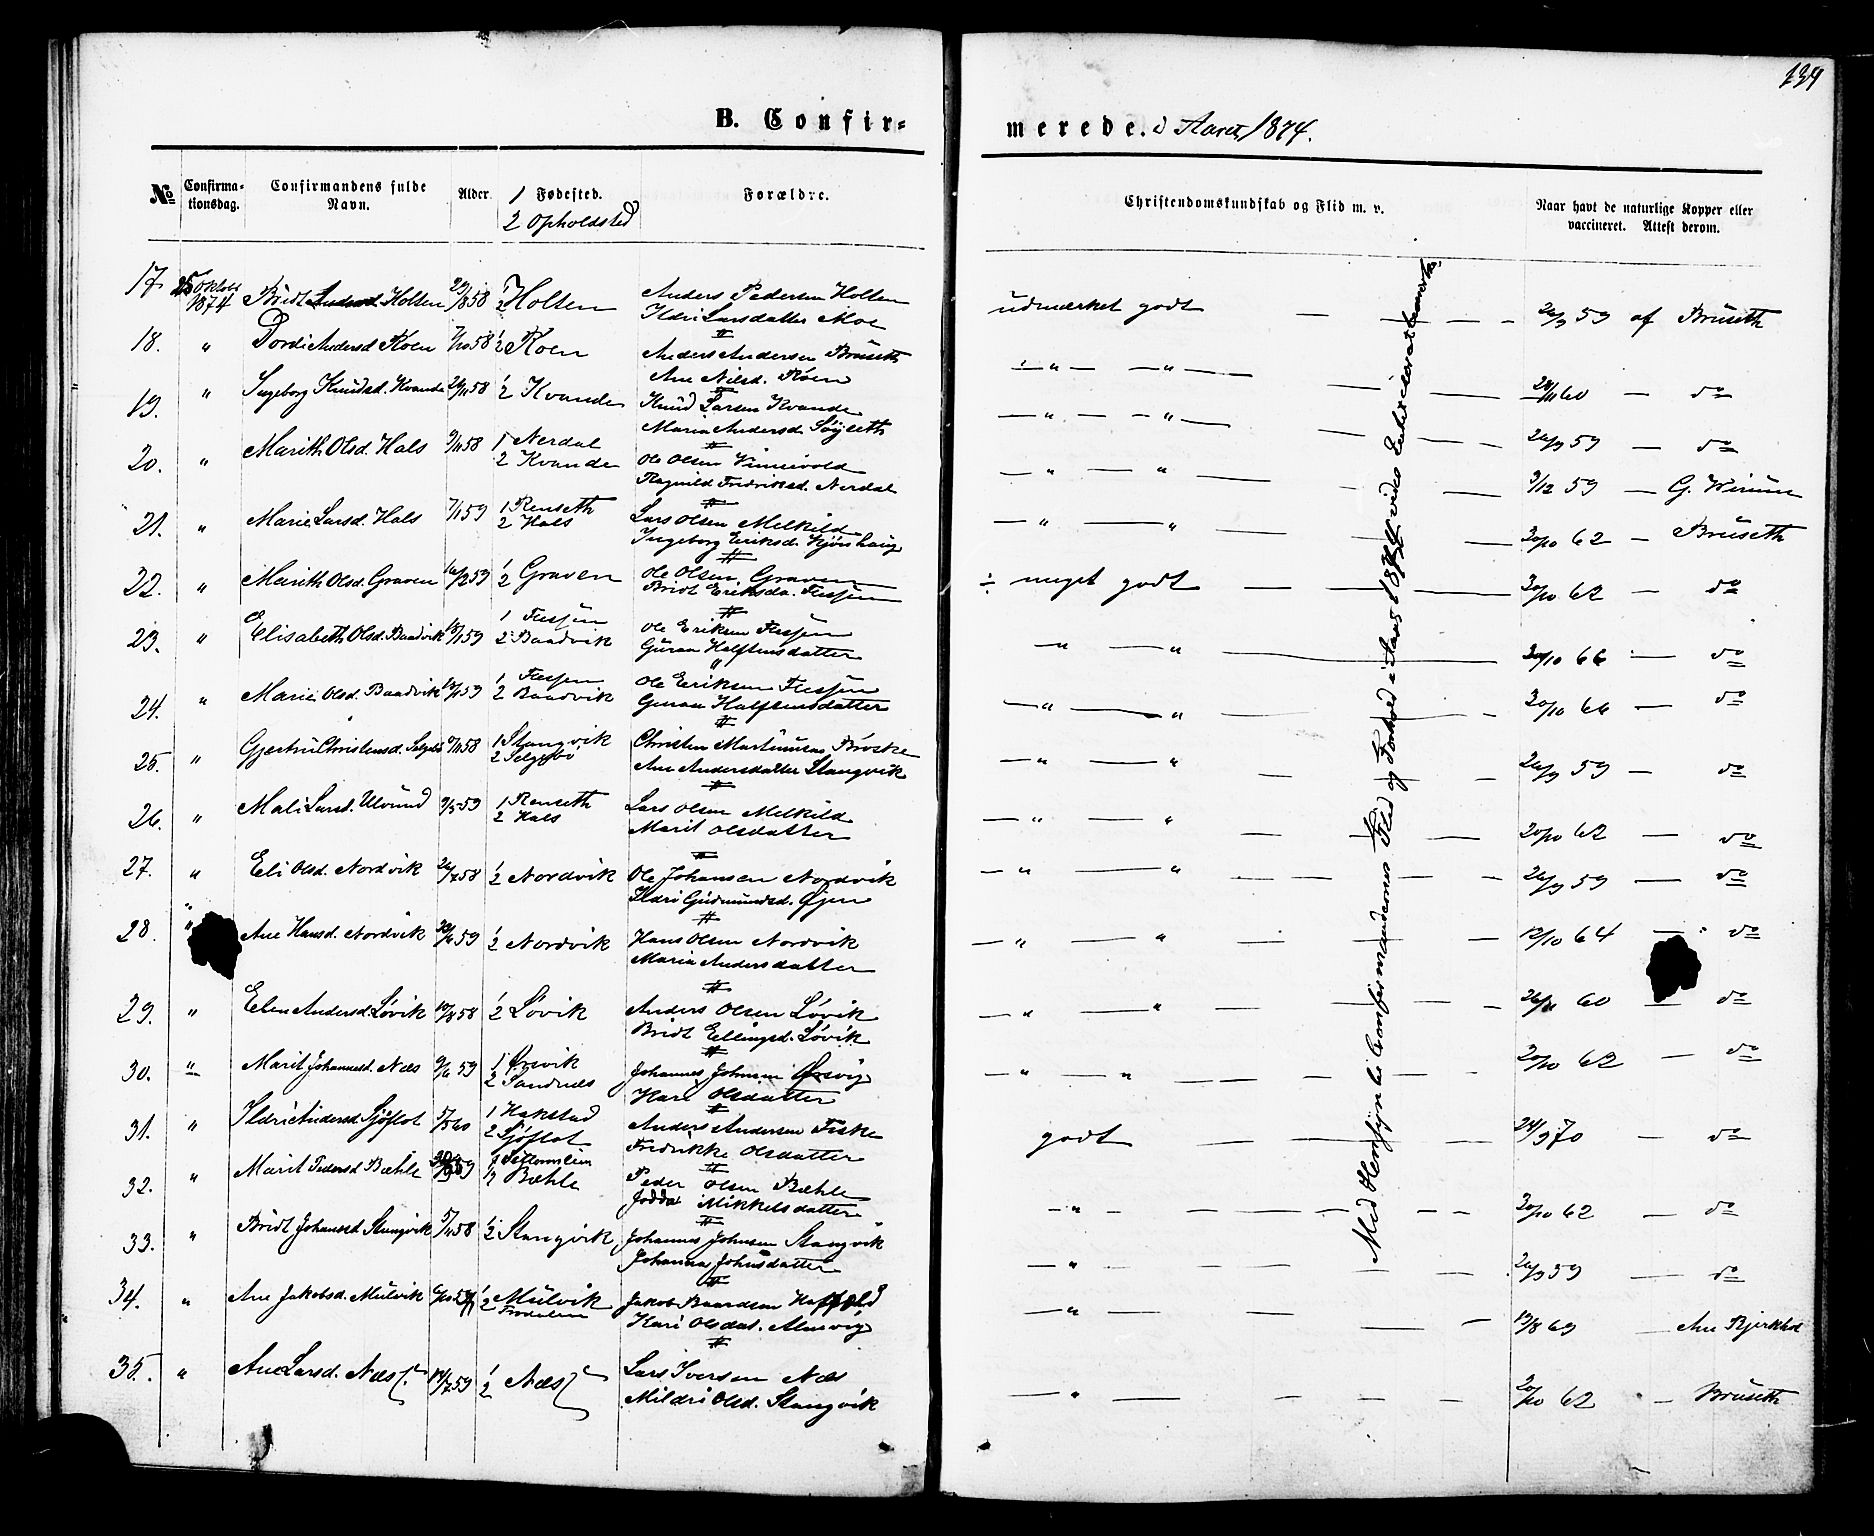 134
B. Confir-
merede. i Aaret 1874.
No
Confirma-
tionsdag.
Confirmandens fulde
Navn.
Alder.
1 Fødested.
2 Opholdsted
Forældre.
Christendomskundskab og Flid m. v.
Naar havt de naturlige Kopper eller
vaccineret. Attest derom.
17. 25 Oktob 1874 Bridt Andersd. Holten 29/ 1858 1/2 Holten Anders Pedersen Holten
Ildri Larsdatter Moe
udmærket godt 59 af Bruseth
18. " Dordi Andersd. Koen 7/10 58 1/2 Koen Anders Andersen Bruseth
Ane Nilsd. Koen
" " 60 do
19. " Ingeborg Knudsd. Kvande 29/11 58 1/2 Kvande Knud Larsen Kvande
Maren Andersd.
" " 26/9 59 do
20. " Marith Olsd. Hals 9/11 58 1 Nerdal
2 Kvande Ole Olsen
Ragnild Fredriksd. Nerdal
" " 9/12 59 G.
21. " Marie Larsd. Hals 7/1 59 1 Renseth
2 Hals Lars Olsen Melkild
Ingeborg Eriksd. Kjønshaug
" " 20/10 62 Bruseth
22. " Marith Olsd. Graven 16/2 59 1/2 Graven Ole Olsen Graven
Bridt Eriksda. Flessjen
÷ meget godt 20/10 62 do
23. " Elisabeth Olsd. Baadvik 18/1 59 1 Flessjen
2 Baadvik Ole Eriksen Flessjen
Guraa Halftensdatter
" " 20/10 66 do
24. " Marie Olsd. Baadvik 18/1 59 1 Flessjen
2 Baadvik Ole Eriksen Flessjen
Guraa Halftensdatter
" " 20/10 66 do
25. " Gjertru Christensd. 9/11 58 1 Stangvik
2 Selgsbø Christen Martinusen Brøske
Ane Andersdatter Stangvik
" " 26/9 59 do
26. " Mali Larsd. Ulvund 9/5 59 1 Renseth
2 Hals Lars Olsen Melkild
Marit Olsdatter
" " 20/10 62 do
27. " Eli Olsd. Nordvik 58 1/2 Nordvik Ole Johansen Nordvik
Ildri Gudmundsd. Øjen
" " 26/9 59 do
28. " Ane Hansd. Nordvik 59 1/2 Nordvik Hans Olsen Nordvik
Maria Andersdatter
" " 12/10 64 do
29. " Elen Andersd. Løvik 58 1/2 Løvik Anders Olsen Løvik
Bridt Ellingsd. Løvik
" " 60 do
30. " Marit Johannesd. Næs 9/6 59 1 Ørsvik
2 Sandnes Johannes Johnsen Ørsvig
Kari Olsdatter
" " 20/10 62 do
31. " Ildri Andersd. Sjøflot 5/5 60 1 Hakstad
2 Sjøflot Anders Andersen Fiske
Fredrikke Olsdatter
godt 24/9 70 do
32. " Marit Pedersd. Bæhle 59
2 Bæhle Peder Olsen Bæhle
Jodda Mikkelsdatter
" 20/10 62 do
33. " Bridt Johansd. Stangvik 5/11 58 1/2 Stangvik Johannes Johnsen Stangvik
Johanna Johnsdatter
" 26/9 59 do
34. " Ane Jakobsd. Mulvik 1/2 Mulvik
Jakob Baardsen Haffæld
Kari Olsdat. Almvig
" 19/8 69 Ane Bjerkhol
35. " Ane Larsd. Næs 14/7 59 1/2 Næs Lars Iversen Næs
Mildri Olsd. Stangvik
" 20/10 62 Bruseth
Med Hensyn til Confirmandernes Flid og Forhold i Aaret 1874 vides Intet